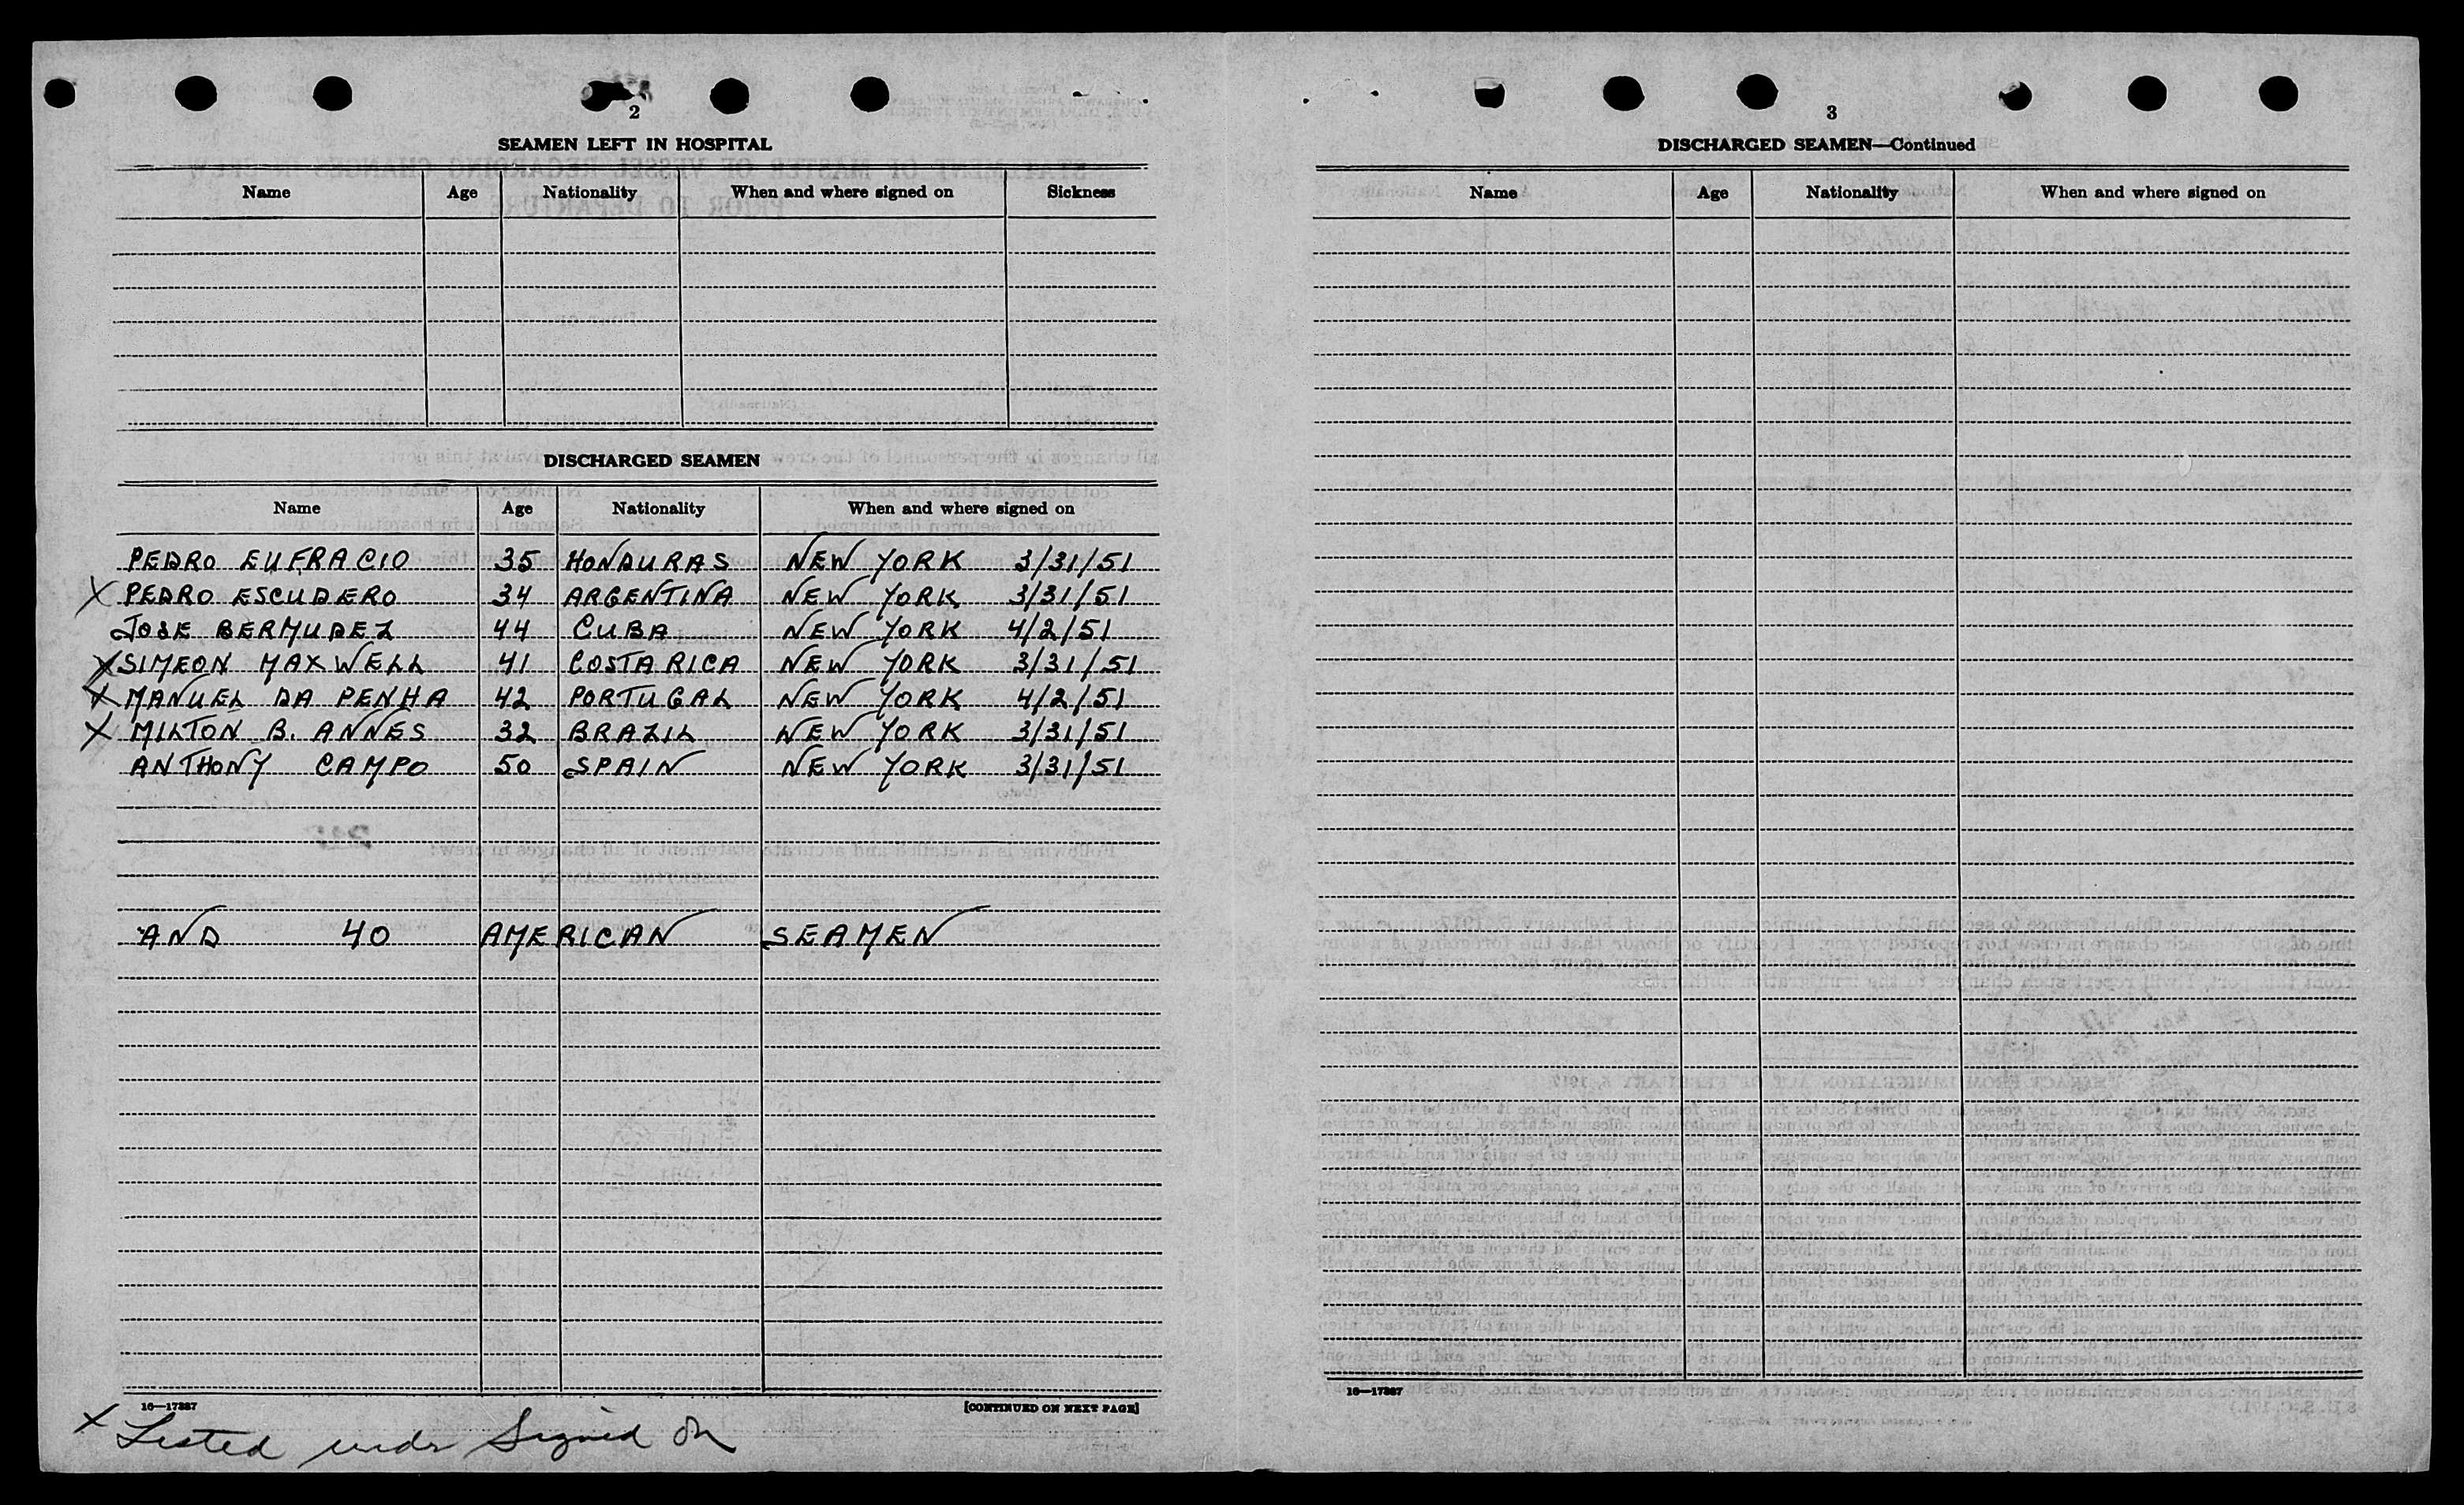 2
SEAMEN LEFT IN HOSPITAL
Name Age Nationality When and where signed on Sickness
DISCHARGED SEAMEN
Name Age Nationality When and where signed on
PEDRO EUFRACIO 35 HONDURAS NEW YORK 3/31/51
X PEDRO ESCUDERO 34 ARGENTINA NEW YORK 3/31/51
JOSE BERMUDEZ 44 CUBA NEW YORK 4/2/51
X SIMEON MAXWELL 41 COSTA RICA NEW YORK 3/31/51
X MANUEL DA PENHA 42 PORTUGAL NEW YORK 4/2/51
X MILTON B. ANNES 32 BRAZIL NEW YORK 3/31/51
ANTHONY CAMPO 50 SPAIN NEW YORK 3/31/51
AND 40 AMERICAN SEAMEN
16—17387
[CONTINUED ON NEXT PAGE]
X Listed under Signed On
3
DISCHARGED SEAMEN—Continued
Name Age Nationality When and where signed on
16—17387